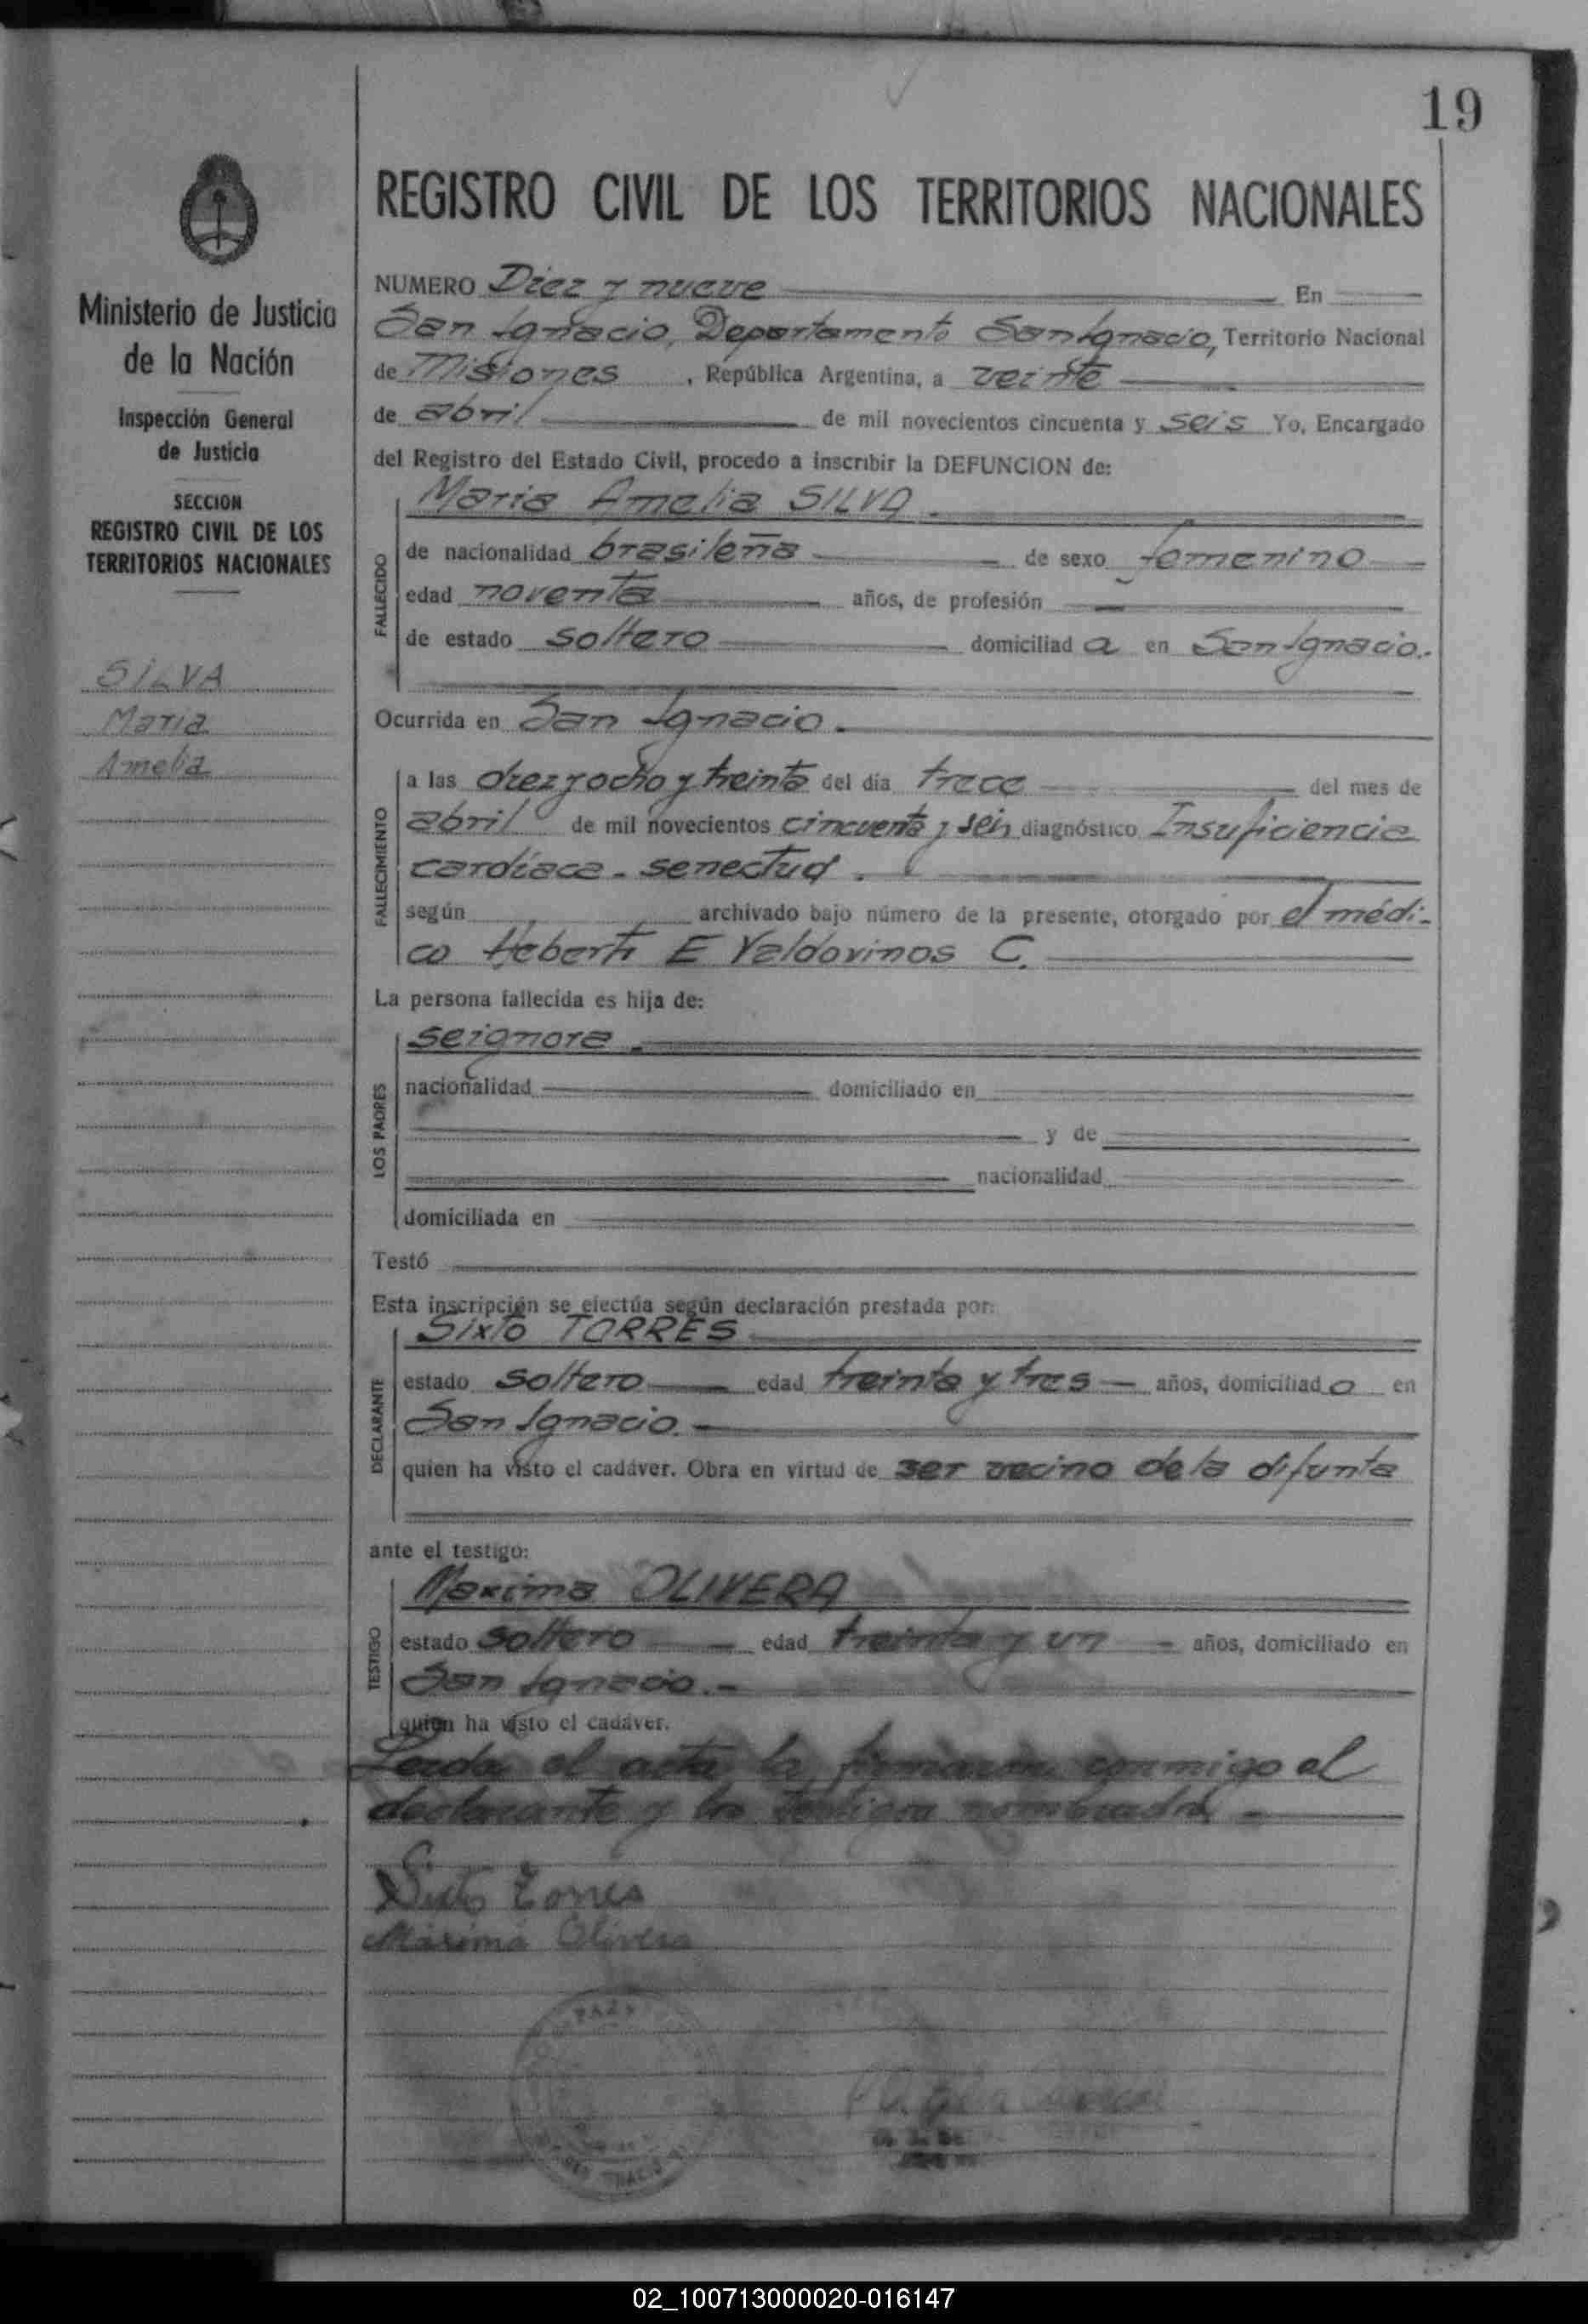 19
REGISTRO CIVIL DE LOS TERRITORIOS NACIONALES
Ministerio de Justicia
de la Nación
Inspección General
de Justicia
SECCION
REGISTRO CIVIL DE LOS
TERRITORIOS NACIONALES
SILVA
Maria
Amelia
NUMERO Diez y nueve En
San Ignacio, Departamento San Ignacio, Territorio Nacional
de Misiones, República Argentina, a veinte
de abril de mil novecientos cincuenta y seis Yo, Encargado
del Registro del Estado Civil, procedo a inscribir la DEFUNCION de:
Maria Amelia SILVA.
FALLECIDO
de nacionalidad brasileña de sexo femenino
edad noventa años, de profesión
de estado soltero domiciliada en San Ignacio.
Ocurrida en San Ignacio.
FALLECIMIENTO
a las diez y ocho y treinta del día trece del mes de
abril de mil novecientos cincuenta y seis diagnóstico Insuficiencia
cardíaca - senectud.
según archivado bajo número de la presente, otorgado por el médi-
co Heberto E Valdovinos C.
La persona fallecida es hija de:
LOS PADRES
se ignora.
nacionalidad domiciliado en
y de
nacionalidad
domiciliada en
Testó
Esta inscripción se efectúa según declaración prestada por:
DECLARANTE
Sixto TORRES
estado soltero edad treinta y tres años, domiciliado en
San Ignacio.
quien ha visto el cadáver. Obra en virtud de ser vecino de la difunta
ante el testigo:
TESTIGO
Maxima OLIVERA
estado soltero edad treinta y un años, domiciliado en
San Ignacio.-
quien ha visto el cadáver.
Leida el acta la firmaron conmigo el
declarante y los testigos nombrados.-
Sixto Torres
Máxima Olivera
PAZ
02_100713000020-016147